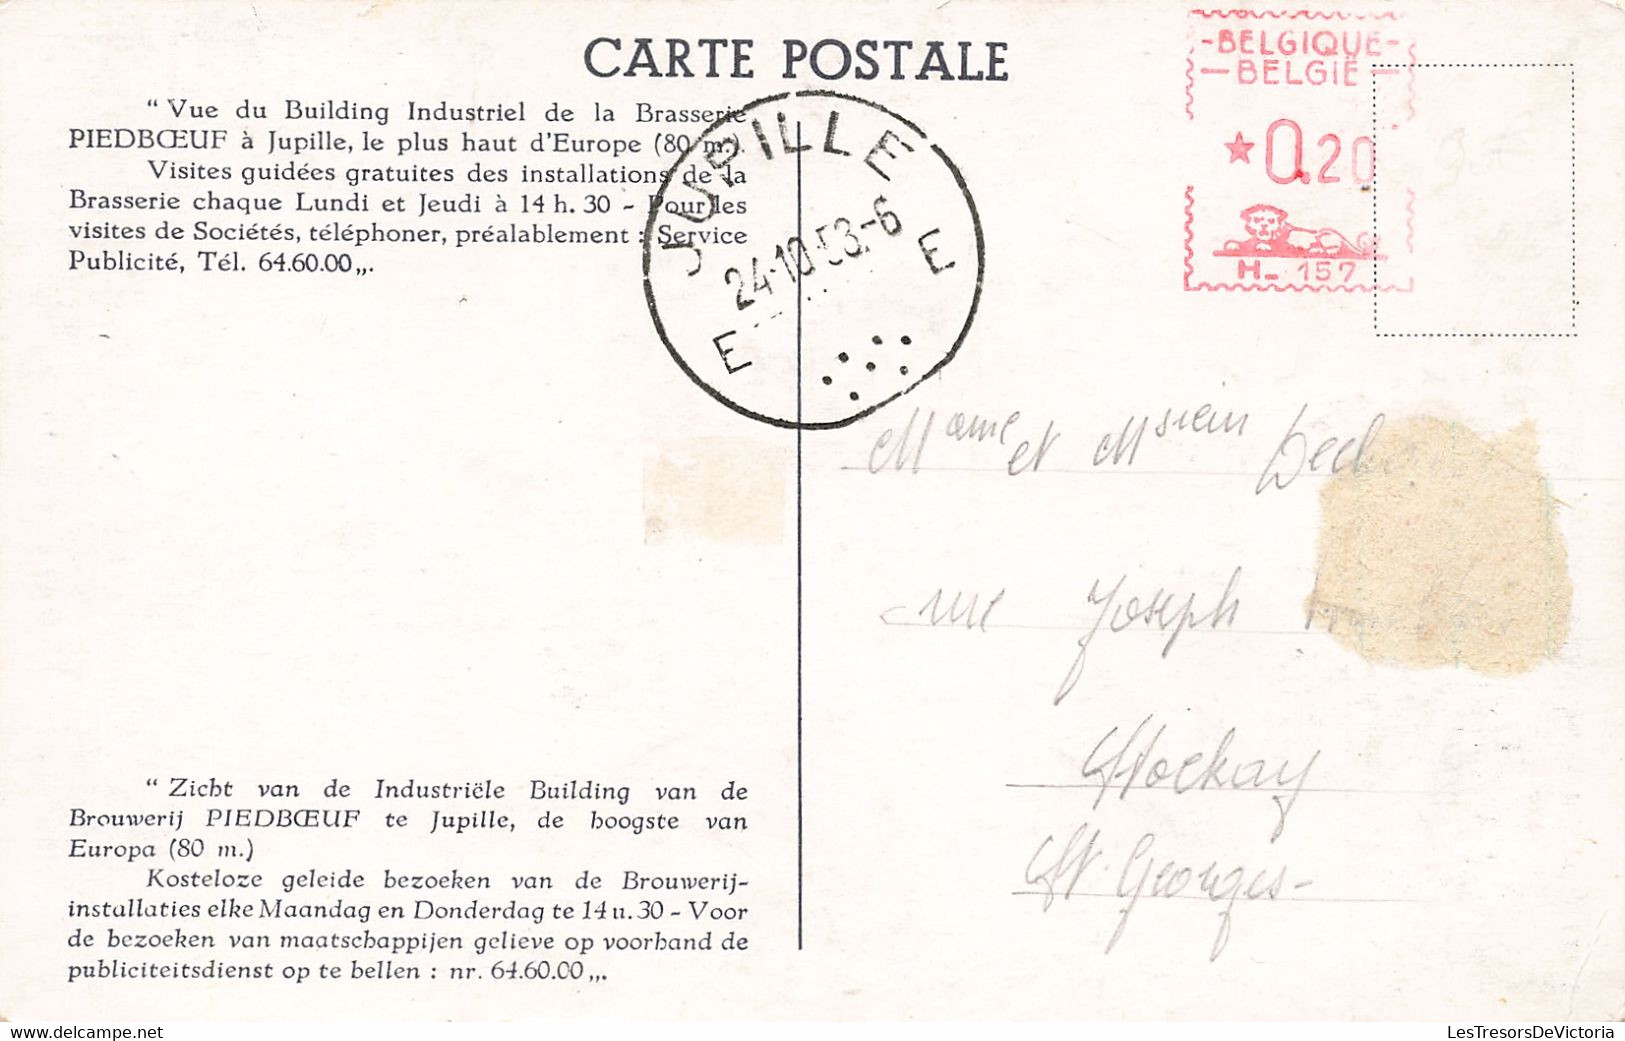 CARTE POSTALE
-BELGIQUE-
-BELGIË-
★0.20
H- 157
“ Vue du Building Industriel de la Brasserie
PIEDBŒUF à Jupille, le plus haut d'Europe (80 m.).
Visites guidées gratuites des installations de la
Brasserie chaque Lundi et Jeudi à 14 h. 30 - Pour les
visites de Sociétés, téléphoner, préalablement : Service
Publicité, Tél. 64.60.00„.
JUPILLE
24-10-53.-6
E E
et
rue Joseph
Stockay
St. Georges-
“ Zicht van de Industriële Building van de
Brouwerij PIEDBŒUF te Jupille, de hoogste van
Europa (80 m.)
Kosteloze geleide bezoeken van de Brouwerij-
installaties elke Maandag en Donderdag te 14 u. 30 - Voor
de bezoeken van maatschappijen gelieve op voorhand de
publiciteitsdienst op te bellen : nr. 64.60.00„.
LesTresorsDeVictoria
delcampe.net